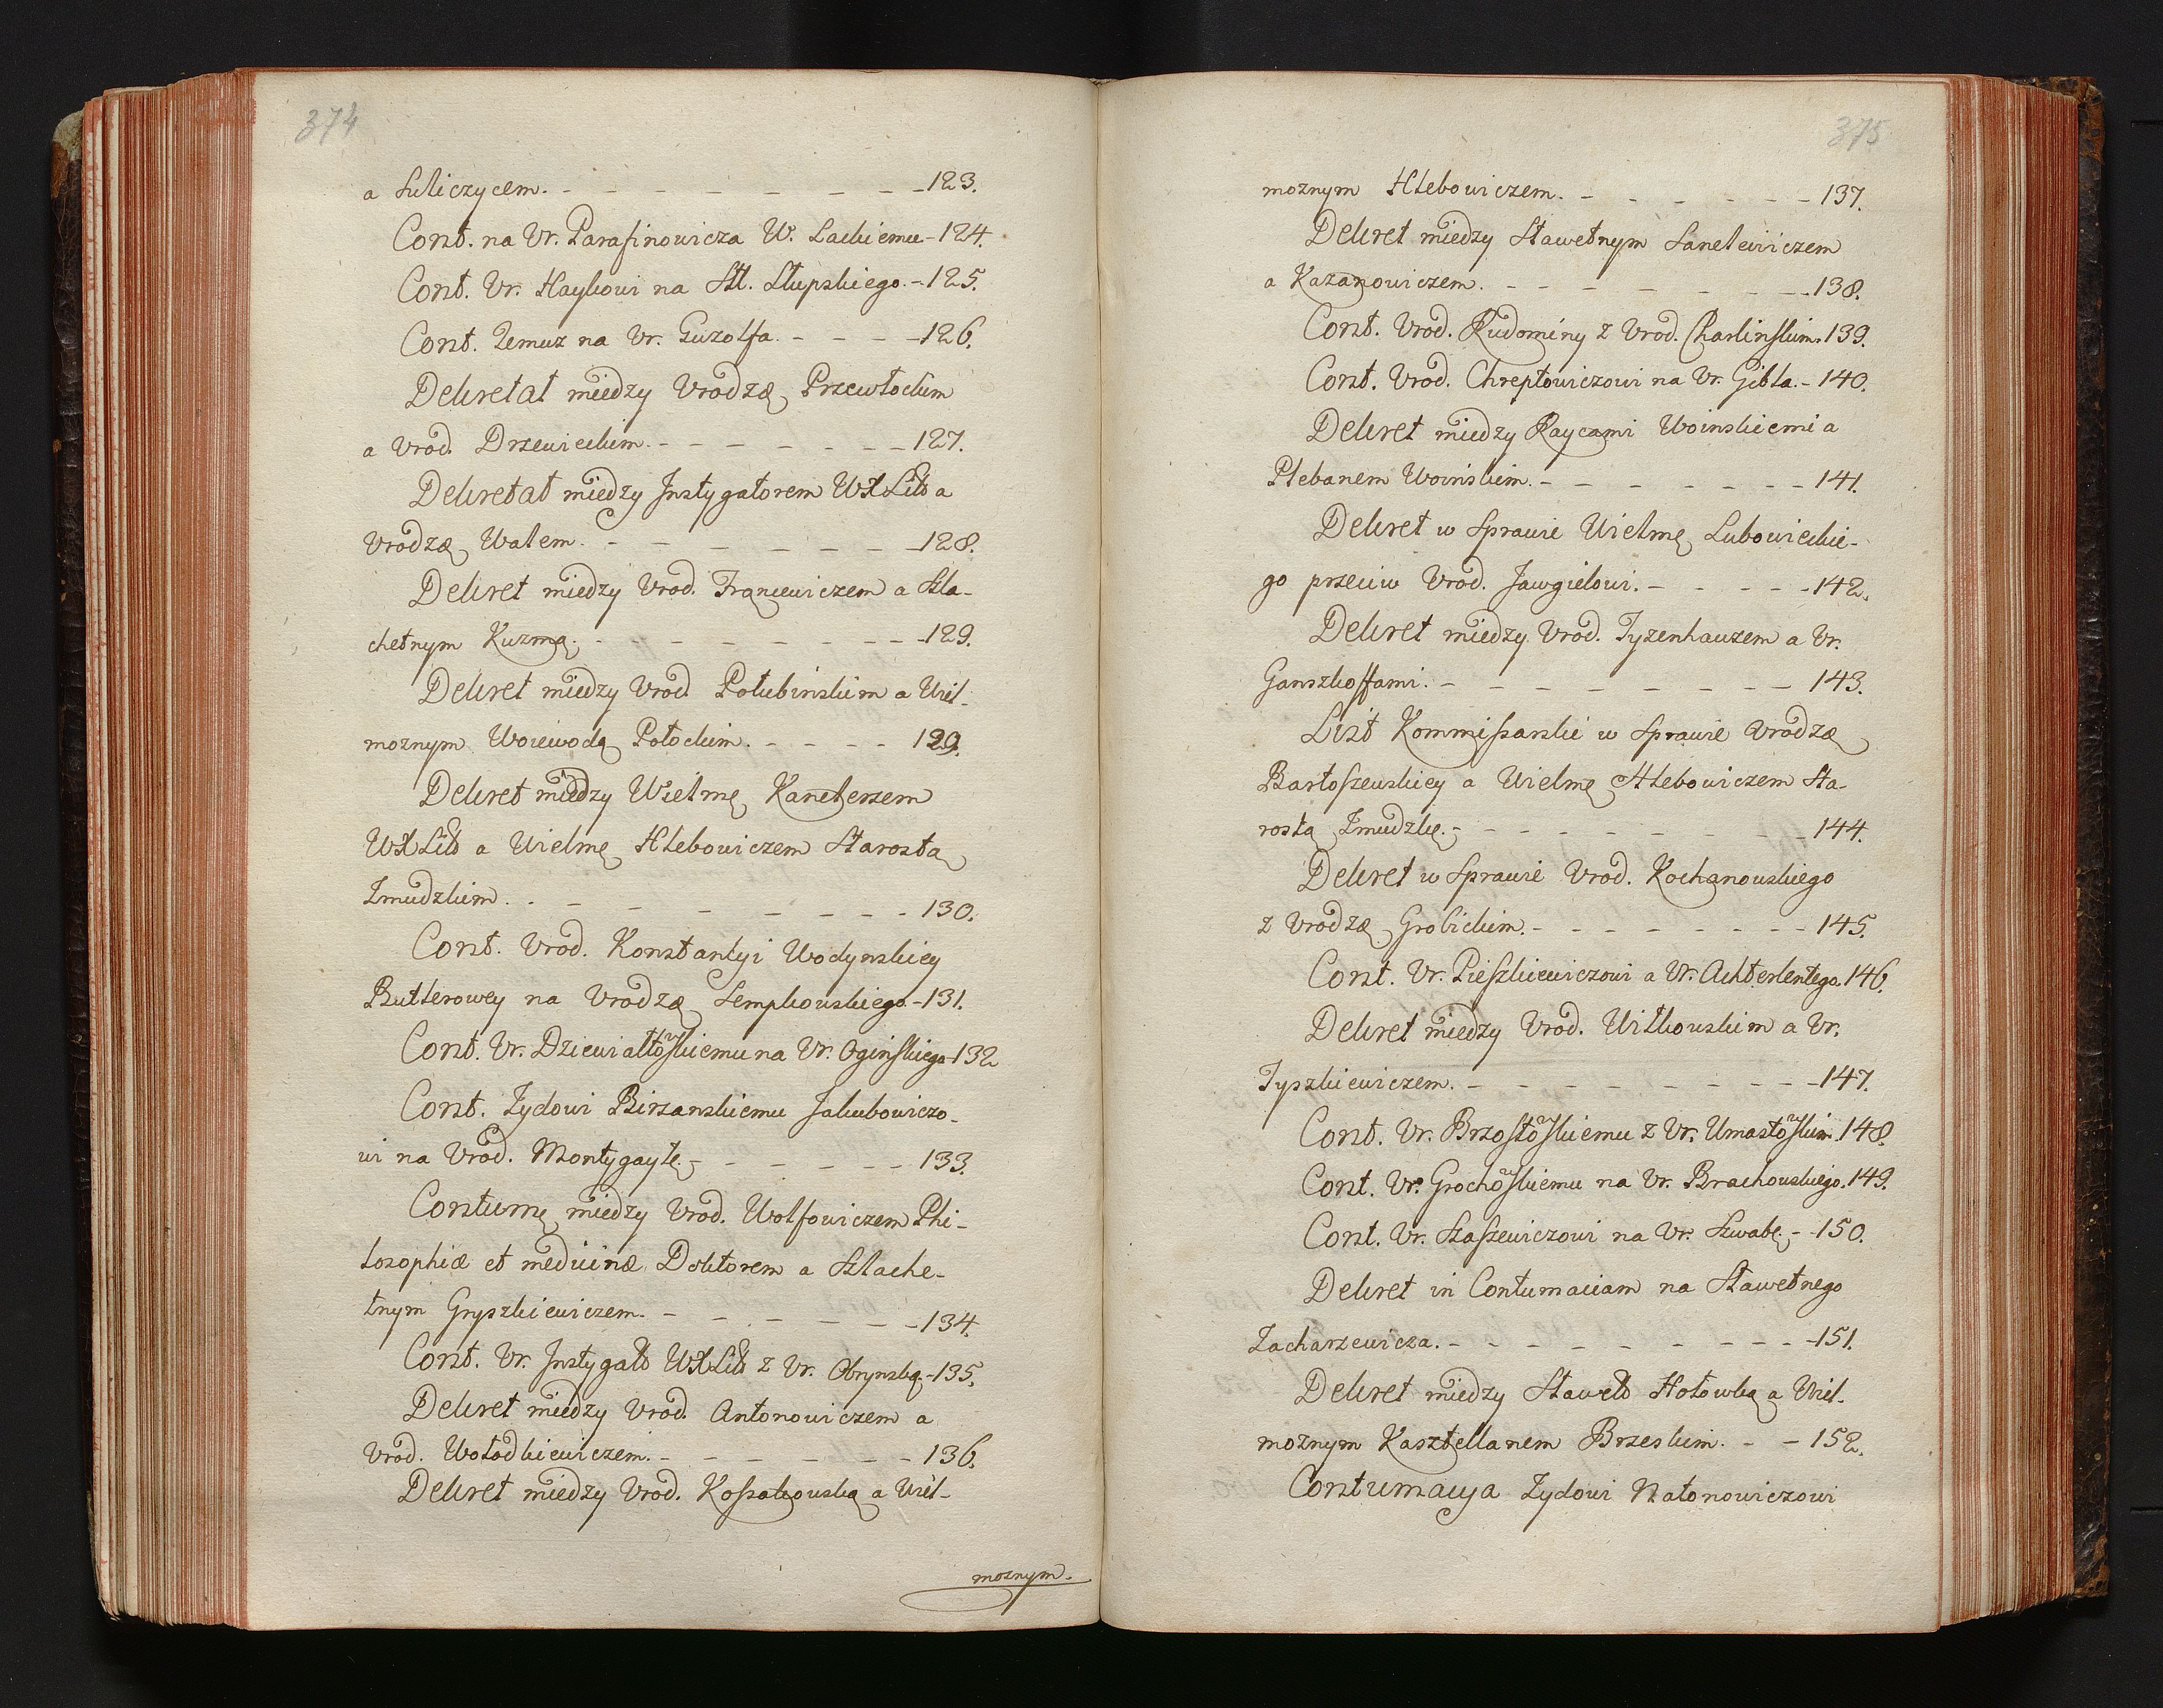 374
a Suliczycem. - - - - - - - - 123.
Cont. na Vr. Parafinowicza W. Lackiemu - 124.
Cont. Vr. Haykowi na Szl. Słupskiego. - 125.
Cont. Zemuz na Vr. Guzolfa. - - - - 126.
Dekretat między Vrodzę Przewłockim
a Vrod. Drzewieckim. - - - - - - - 127.
Dekretat między Instygatorem WXLitt a
Vrodzę Walem. - - - - - - - 128.
Dekret między Vrod. Francewiczem a Szla-
chetnym Kuzmą. - - - - - - - - 129.
Dekret między Vrod. Połubinskim a Wiel-
moznym Woiewodą Połockim. - - - - 129.
Dekret między Wielmę Kanclerzem
WXLitt a Wielmę Hlebowiczem Starostą
Zmudzkim. - - - - - - - - 130.
Cont. Vrod. Konstantyi Wodynskiey
Butlerowey na Vrodzę Sempkowskiego. - 131.
Cont. Vr. Dziewiałtowskiemu na Vr. Oginskiego - 132
Cont. Zydowi Birzanskiemu Jakubowiczo-
wi na Vrod. Montygayłę. - - - - - - 133.
Contumę między Vrod. Wolfowiczem Phi-
losophiæ et medicinæ Doktorem a Szlache-
tnym Gryszkiewiczem. - - - - - - 134.
Cont. Vr. Instygatt WXLitt z Vr. Obrynską - 135.
Dekret między Vrod. Antonowiczem a
Vrod. Wołodkiewiczem. - - - - - - 136.
Dekret między Vrod. Kossakowską a Wiel-
moznym.
375
moznym Hlebowiczem. - - - - - - 137.
Dekret między Sławetnym Sanelewiczem
a Kazanowiczem. - - - - - - - 138.
Cont. Vrod. Rudominy z Vrod. Charlinskim. 139.
Cont. Vrod. Chreptowiczowi na Vr. Gibla. - 140.
Dekret między Raycami Woinskiemi a
Plebanem Woinskim. - - - - - - - 141.
Dekret w Sprawie Wielmę Lubowieckie-
go przeciw Vrod. Jawgielowi. - - - - - 142.
Dekret między Vrod. Tyzenhauzem a Vr.
Ganszkoffami. - - - - - - - - 143.
List Kommissarski w Sprawie Vrodzę
Bartoszewskiey a Wielmę Hlebowiczem Sta-
rostą Zmudzkę. - - - - - - - - 144.
Dekret w Sprawie Vrod. Kochanowskiego
z Vrodzę Grobickim. - - - - - - - 145.
Cont. Vr. Pieszkiewiczowi a Vr. Achterlentego. 146.
Dekret między Vrod. Witkowskim a Vr.
Tyszkiewiczem. - - - - - - - - - 147.
Cont. Vr. Brzostowskiemu z Vr. Umastowskim. 148.
Cont. Vr. Grochowskiemu na Vr. Brachowskiego. 149.
Cont. Vr. Szaszewiczowi na Vr. Szwabę. - - 150.
Dekret in Contumaciam na Sławetnego
Zacharzewicza. - - - - - - - - - 151.
Dekret między Sławett Hołowką a Wiel-
moznym Kasztellanem Brzeskim. - - 152.
Contumacya Zydowi Natonowiczowi